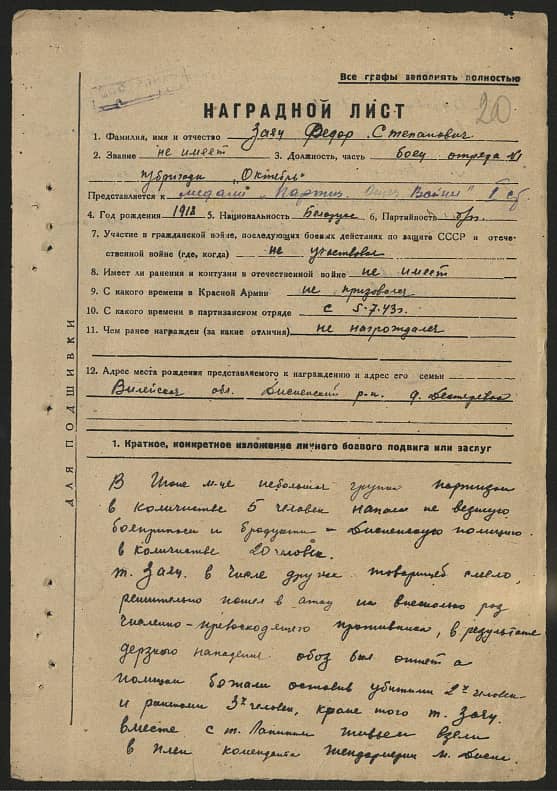 Все графы заполнять полностью
20
НАГРАДНОЙ ЛИСТ
1. Фамилия, имя и отчество Заяц Федор Степанович
2. Звание не имеет 3. Должность, часть боец отряда №1
п/бригады "Октябрь"
Представляется к медали "Партиз. Отеч. Войны" ст.
4. Год рождения 1912 5. Национальность Белорус 6. Партийность б/п.
7. Участие в гражданской войне, последующих боевых действиях по защите СССР и отече-
ственной войне (где, когда) не участвовал
8. Имеет ли ранения и контузии в отечественной войне не имеет
9. С какого времени в Красной Армии не призовался
10. С какого времени в партизанском отряде с 5.7.43г.
11. Чем ранее награжден (за какие отличия) не награждался
12. Адрес места рождения представляемого к награждению и адрес его семьи
Вилейская обл. Дисненский р-н д.
ДЛЯ ПОДШИВКИ
1. Краткое, конкретное изложение личного боевого подвига или заслуг
В Июне м-це небольшая группа партизан
в количестве 5 человек напала на везшую
боеприпасы и продукты – Дисненскую полицию
в количестве 20 человек.
т. Заяц. в числе других товарищей смело,
решительно пошел в атаку на внесколько раз
численно-превосходящего противника, в результате
дерзкого нападения обоз был отнят а
полицаи бежали оставив убитыми 2х человек
и ранеными 3х человек, кроме того т. Заяц.
вместе с т. Лапиным живьем взяли
в плен коменданта жандармерии м. Дисны.